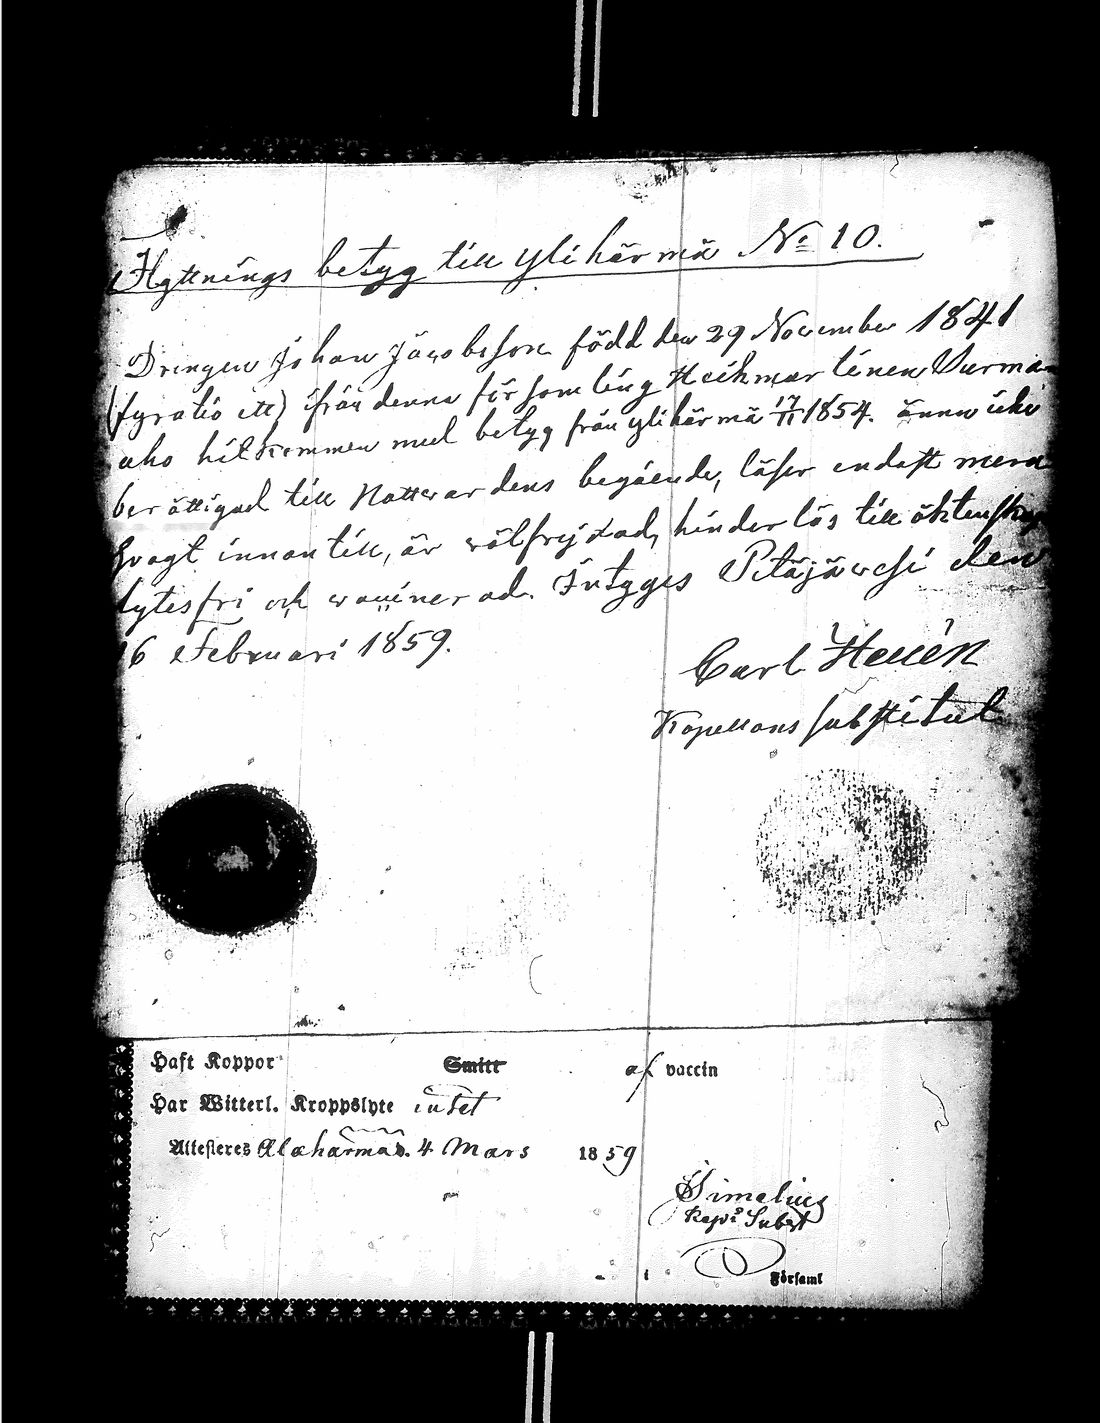 Flyttnings betyg till Ylihärmä No 10.
Drengen Johan Jacobsson född den 29 November 1841
(fyratio ett) ifrån denna församling
aho hitkommen med betyg från Ylihärmä 17/11 1854. ännu icke
berättigad till Nattvardens begående, läser endast
svagt innantill, är välfrejdad, hinderlös till
lytesfri och vaccinerad. Intygas Pitäjäwesi den
16 Februari 1859.
Carl Hellén
Kapellans substitut.
Haft Koppor Smitt af vaccin
Har Witterl. Kroppslyte intet
Attesteres Alahärmä d. 4 Mars 1859
Simelius
Kaps Subst
Församl